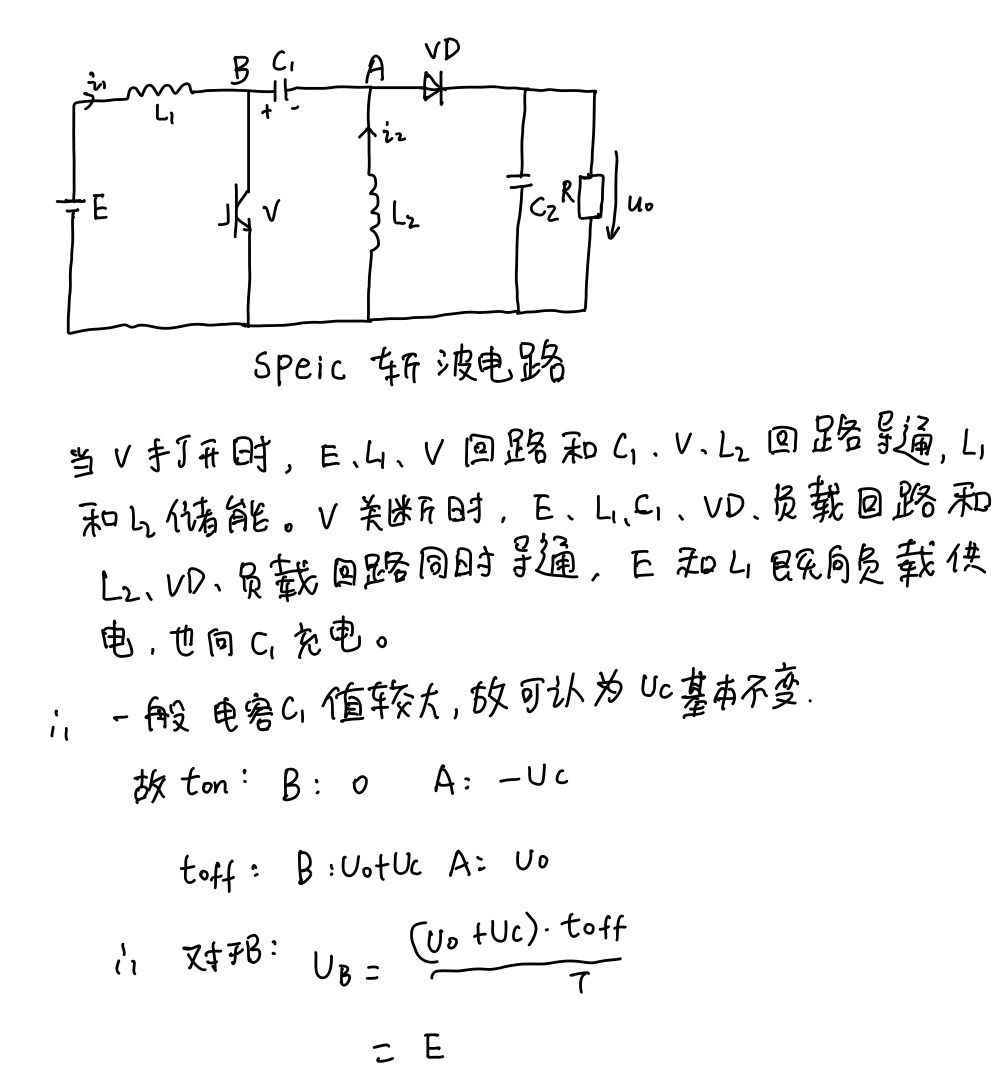 VD
B C₁ A
i₁
L₁ + -
i₂
E V L₂ C₂ R u₀
Speic 斩波电路
当V打开时，E、L₁、V回路和C₁、V、L₂回路导通，L₁
和L₂储能。V关断时，E、L₁、C₁、VD、负载回路和
L₂、VD、负载回路同时导通，E和L₁既向负载供
电，也向C₁充电。
i₁ 一般电容C₁值较大，故可认为Uc基本不变.
故ton: B: 0 A: -Uc
toff: B: U₀+Uc A: U₀
i₁ 对于B: U_B = (U₀+Uc)·toff / T
= E